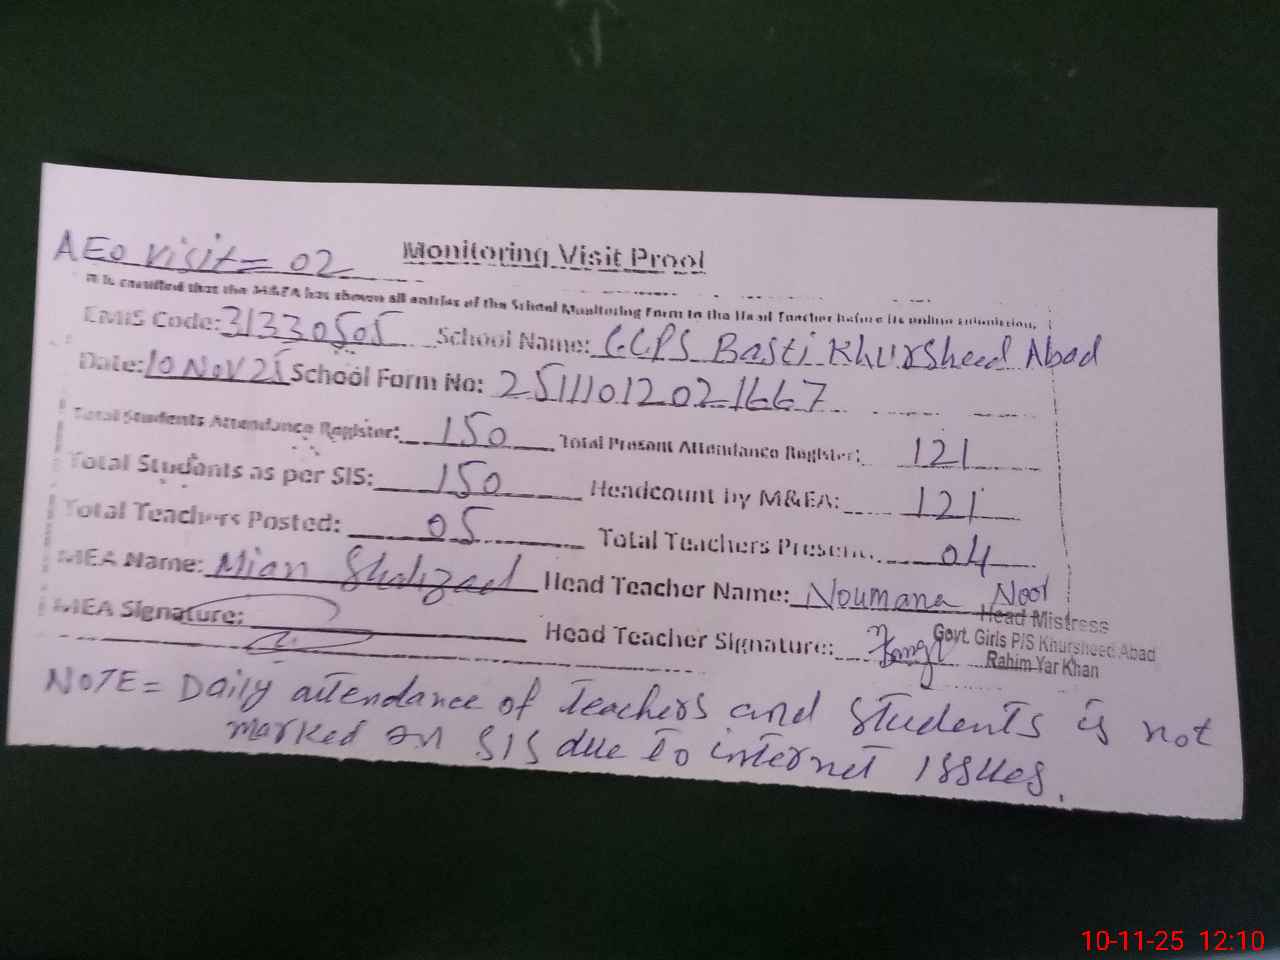 AEO visit = 02
Monitoring Visit Proof
It is certified that the M&EA has shown all entries of the School Monitoring Form to the Head Teacher before its online submission.
EMIS Code: 31330505 School Name: GGPS Basti Khursheed Abad
Date: 10 Nov 25 School Form No: 25111012021667
Total Students Attendance Register: 150 Total Present Attendance Register: 121
Total Students as per SIS: 150 Headcount by M&EA: 121
Total Teachers Posted: 05 Total Teachers Present: 04
MEA Name: Mian Shahzad Head Teacher Name: Noumana Noor
MEA Signature: Head Teacher Signature:
Head Mistress
Govt. Girls P/S Khursheed Abad
Rahim Yar Khan
NOTE = Daily attendance of teachers and students is not
marked on SIS due to internet issues.
10-11-25 12:10